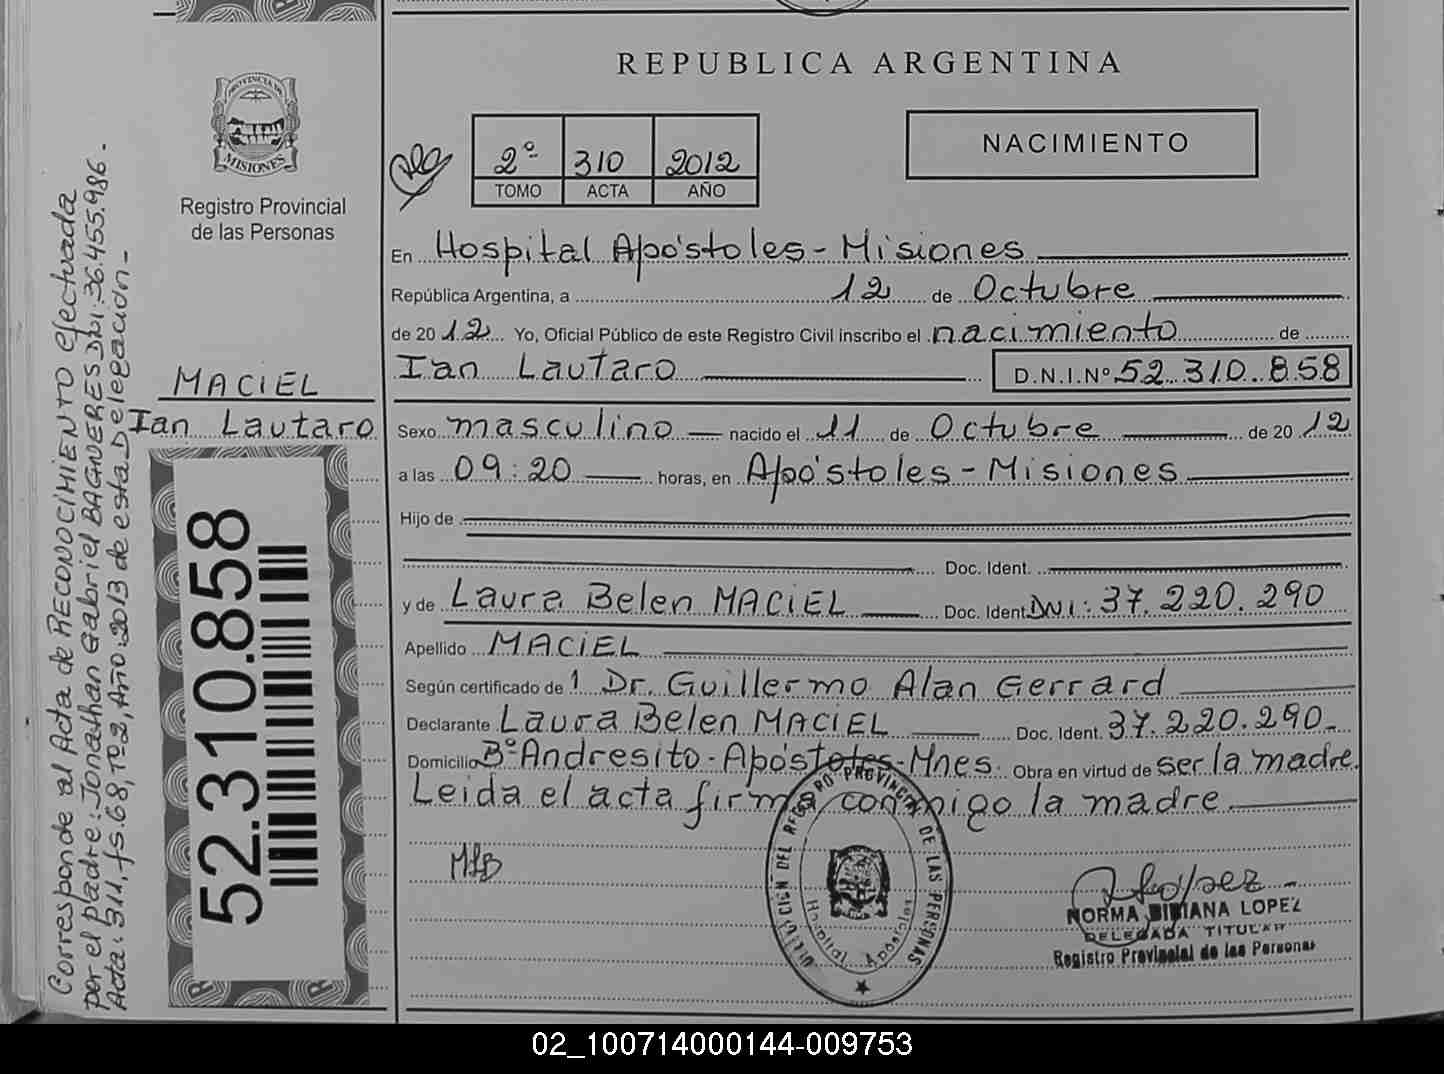 Corresponde al Acta de RECONOCIMIENTO efectuada
por el padre: Jonathan Gabriel BAGUERES DNI: 36.455.986.
Acta: 311, fs. 68, Tº 2, Año 2013 de esta Delegación-
PROVINCIA DE
MISIONES
Registro Provincial
de las Personas
MACIEL
Ian Lautaro
52.310.858
REPUBLICA ARGENTINA
2º 310 2012
TOMO ACTA AÑO
NACIMIENTO
En Hospital Apóstoles - Misiones
República Argentina, a 12 de Octubre
de 2012 Yo, Oficial Público de este Registro Civil inscribo el nacimiento de
Ian Lautaro D.N.I.Nº 52.310.858
Sexo masculino nacido el 11 de Octubre de 2012
a las 09:20 horas, en Apóstoles - Misiones
Hijo de
Doc. Ident.
y de Laura Belen MACIEL Doc. Ident. DNI: 37.220.290
Apellido MACIEL
Según certificado de 1 Dr. Guillermo Alan Gerrard
Declarante Laura Belen MACIEL Doc. Ident. 37.220.290-
Domicilio Bº Andresito - Apóstoles - Mnes. Obra en virtud de ser la madre.
Leida el acta firma conmigo la madre
MLB
DIRECCIÓN DEL REGISTRO PROVINCIAL DE LAS PERSONAS
Hospital Apóstoles
NORMA BIBIANA LOPEZ
DELEGADA TITULAR
Registro Provincial de las Personas
02_100714000144-009753